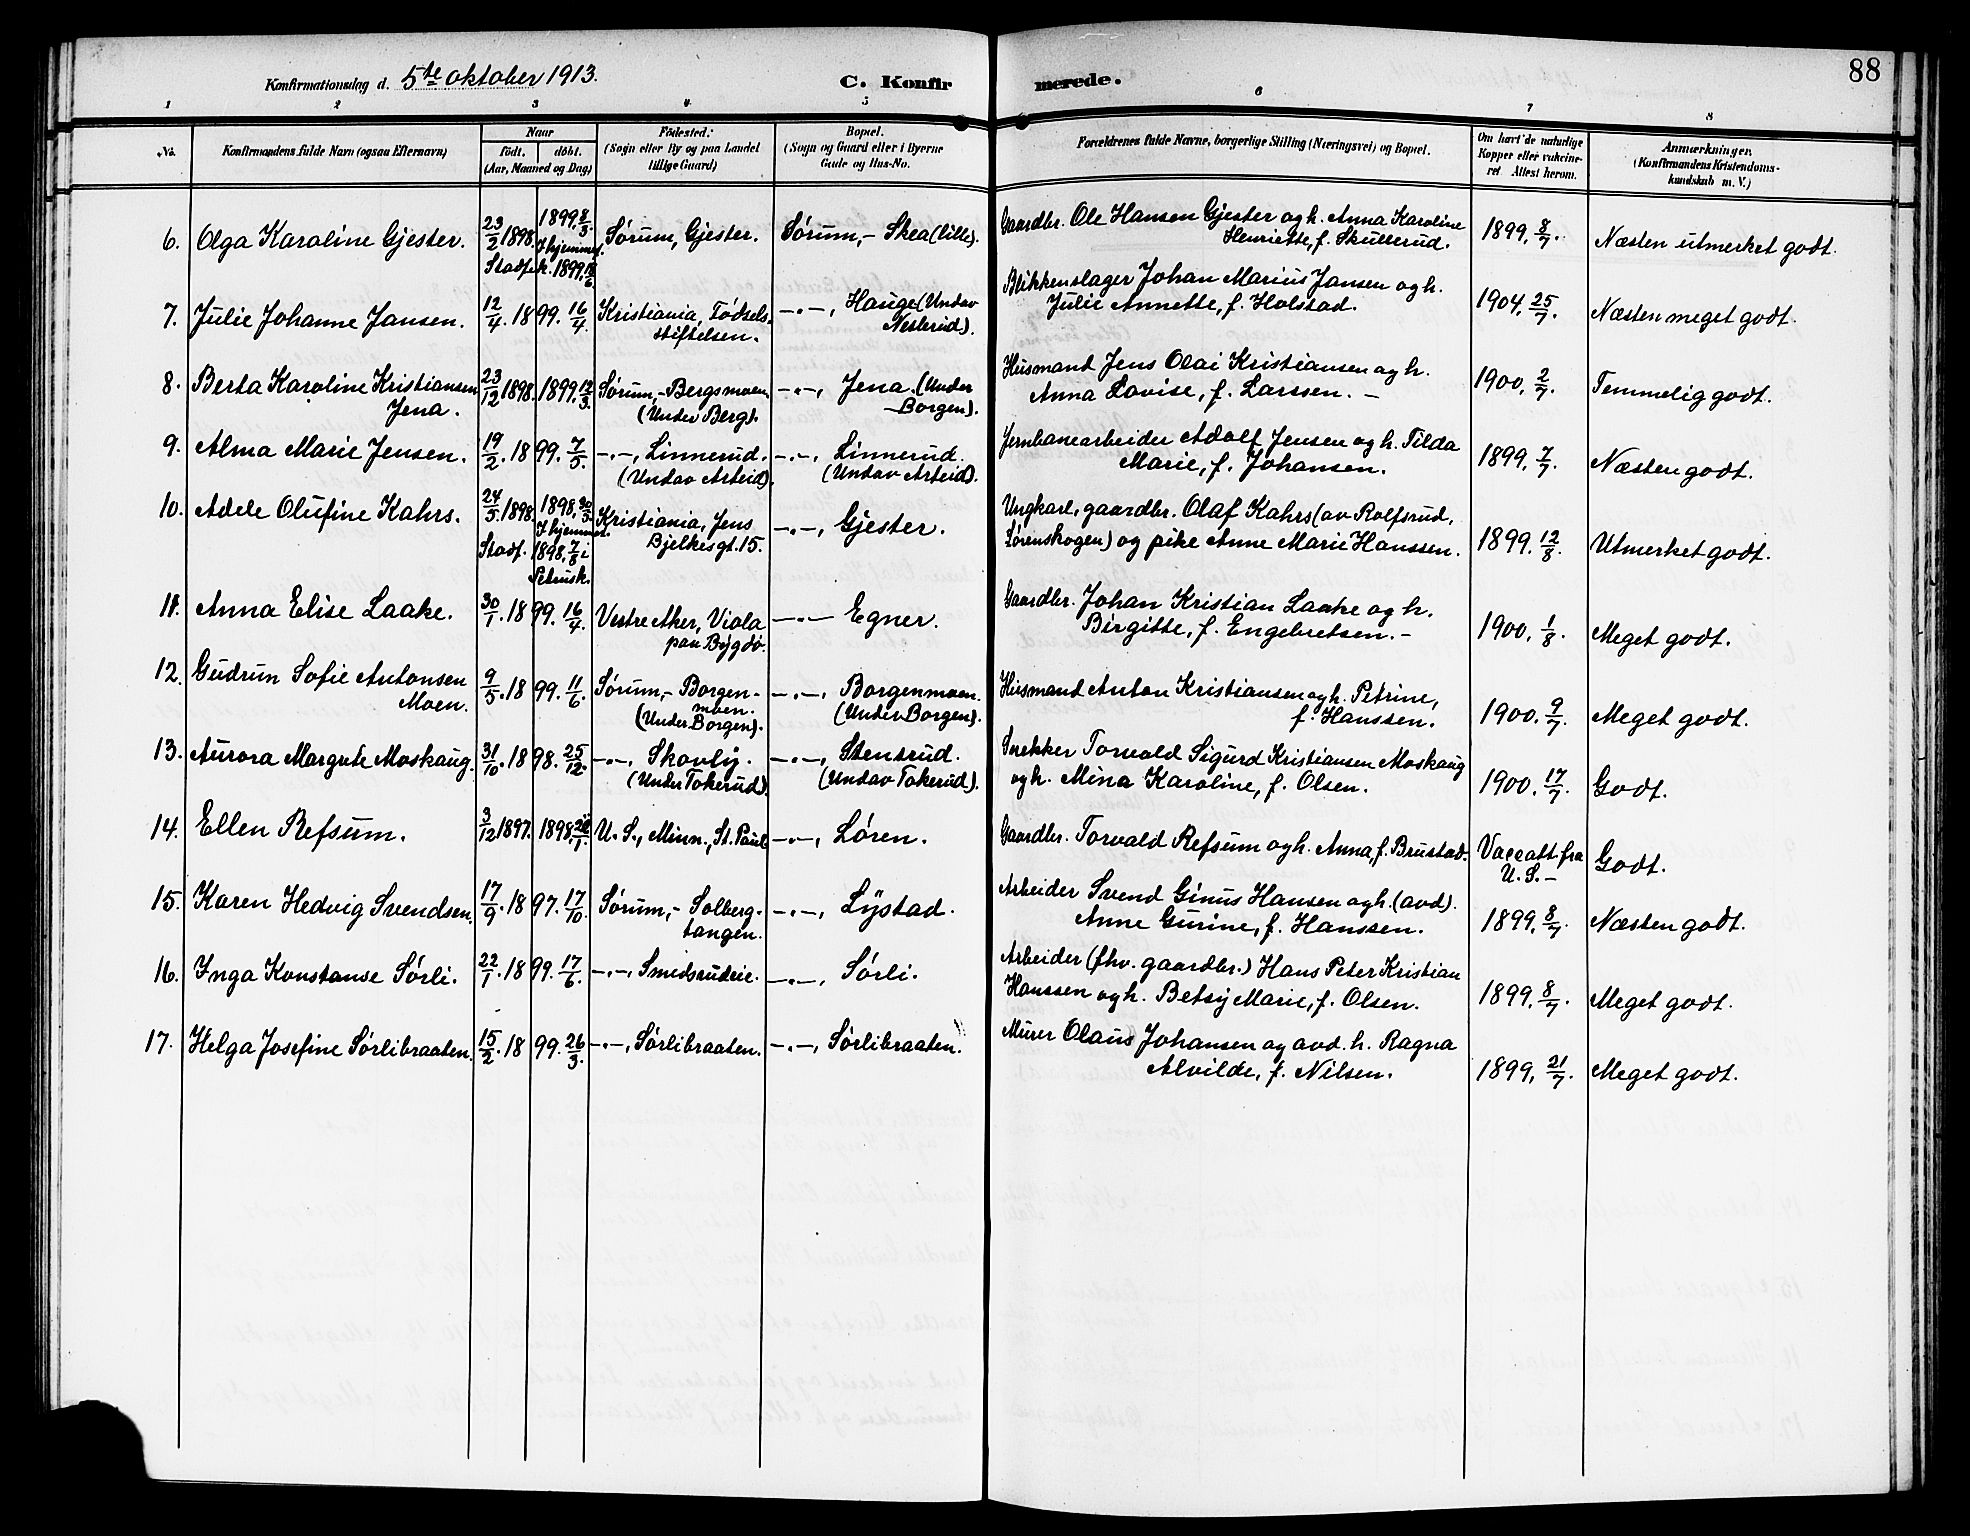 88
Konfirmationsdag d. 5te oktober 1913.
C. Konfirmerede.
1 2 3 4 5 6 7 8
No.
Konfirmandens fulde Navn (ogsaa Efternavn)
Naar
født. døbt.
(Aar, Maaned og Dag)
Fødested.
(Sogn eller By og paa Landet
tillige Gaard)
Bopæl.
(Sogn og Gaard eller i Byerne
Gade og Hus-No.
Forældrenes fulde Navne, borgerlige Stilling (Næringsvei) og Bopæl.
Om havt de naturlige
Kopper eller vakcine-
ret Attest herom.
Anmærkninger
(Konfirmandens Kristendoms-
kundskab m. V.)
6. Olga Karoline Gjester. 23/2 1898. 1899, 8/3. Sørum, Gjester. Sørum,- Skea (lille). Gaardbr. Ole Hansen Gjester og h. Anna Karoline
Hjemmed. Henriette, f. Skullerud. 1899, 8/7. Næsten utmerket godt.
Stadf. k. 1899
7. Julie Johanne Jansen. 12/4. 1899. 16/4. Kristiania, Fødsels-
stiftelsen. -"-, Hauge (Undav
Nesterud). Blikkenslager Johan Marius Jansen og h.
Julie Annette, f. Holstad. 1904, 25/7. Næsten meget godt.
8. Berta Karoline Kristiansen
Jena. 23/12 1898. 1899, 12/3. Sørum,- Bergsmoen
(Under Berg). -"-, Jena (Under
Borgen). Husmand Jens Olai Kristiansen og h.
Anna Lovise, f. Larssen. - 1900, 2/7. Temmelig godt.
9. Alma Marie Jensen. 19/2. 1899. 7/5. -"-, Linnerud.
(Undav Arteid). -"-, Linnerud.
(Undav Arteid). Jernbanearbeider Adolf Jensen og h. Tilda
Marie, f. Johansen. 1899, 7/7. Næsten godt.
10. Adele Olufine Kahrs. 24/3. 1898. 1898, 30/3. Kristiania, Jens
Bjelkesgt. 15. -"-, Gjester. Ungkarl, gaardbr. Olaf Kahrs (av Rolfsrud,
Hjemmed. Sørenskogen) og pike Anne Marie Hanssen. 1899. 12/8. Utmerket godt.
Stadf. 1898, 7/8 i
Petrusk.
11. Anna Elise Laake. 30/1. 1899. 16/4. Vestre Aker, Viola
paa Bygdø. -"- Egner. Gaardbr. Johan Kristian Laake og h.
Birgitte, f. Engebretsen. - 1900, 1/8. Meget godt.
12. Gudrun Sofie Antonsen
Moen. 9/5. 1899. 11/6. Sørum,- Borgen-
moen.
(Under Borgen). -"-, Borgenmoen.
(Under Borgen). Husmand Anton Kristiansen og h. Petrine,
f. Hanssen. 1900. 9/7. Meget godt.
13. Aurora Margrete Moskaug. 31/10. 1898. 25/12. -"-, Skovly.
(Under Tokerud). -"-, Stensrud.
(Undav Tokerud). Snekker Torvald Sigurd Kristiansen Moskaug
og h. Mina Karoline, f. Olsen. 1900. 17/7. Godt.
14. Ellen Refsum. 3/12 1897. 1898, U. S., Minn., St. Paul -"-, Løren. Gaardbr. Torvald Refsum og h. Anna, f. Brustad. Vacc.att. fra
U. S. - Godt.
15. Karen Hedvig Svendsen. 17/9. 1897. 17/10. Sørum,- Solberg-
tangen. -"-, Lystad. Arbeider Svend Ginus Hansen og h. (avd).
Anne Gurine, f. Hanssen. 1899, 8/7. Næsten godt.
16. Ynga Konstanse Sørli. 22/1. 1899. 17/6. -"-, Smedsrudeie. -"-, Sørli. Arbeider (fhv. gaardbr.) Hans Peter Kristian
Hanssen og h. Betsy Marie, f. Olsen. 1899, 8/7. Meget godt.
17. Helga Josefine Sørlibraaten. 15/2. 1899. 26/3. -"-, Sørlibraaten. -"-, Sørlibraaten. Murer Olaus Johansen og avd. h. Ragna
Alvilde, f. Nilsen. 1899, 21/7. Meget godt.